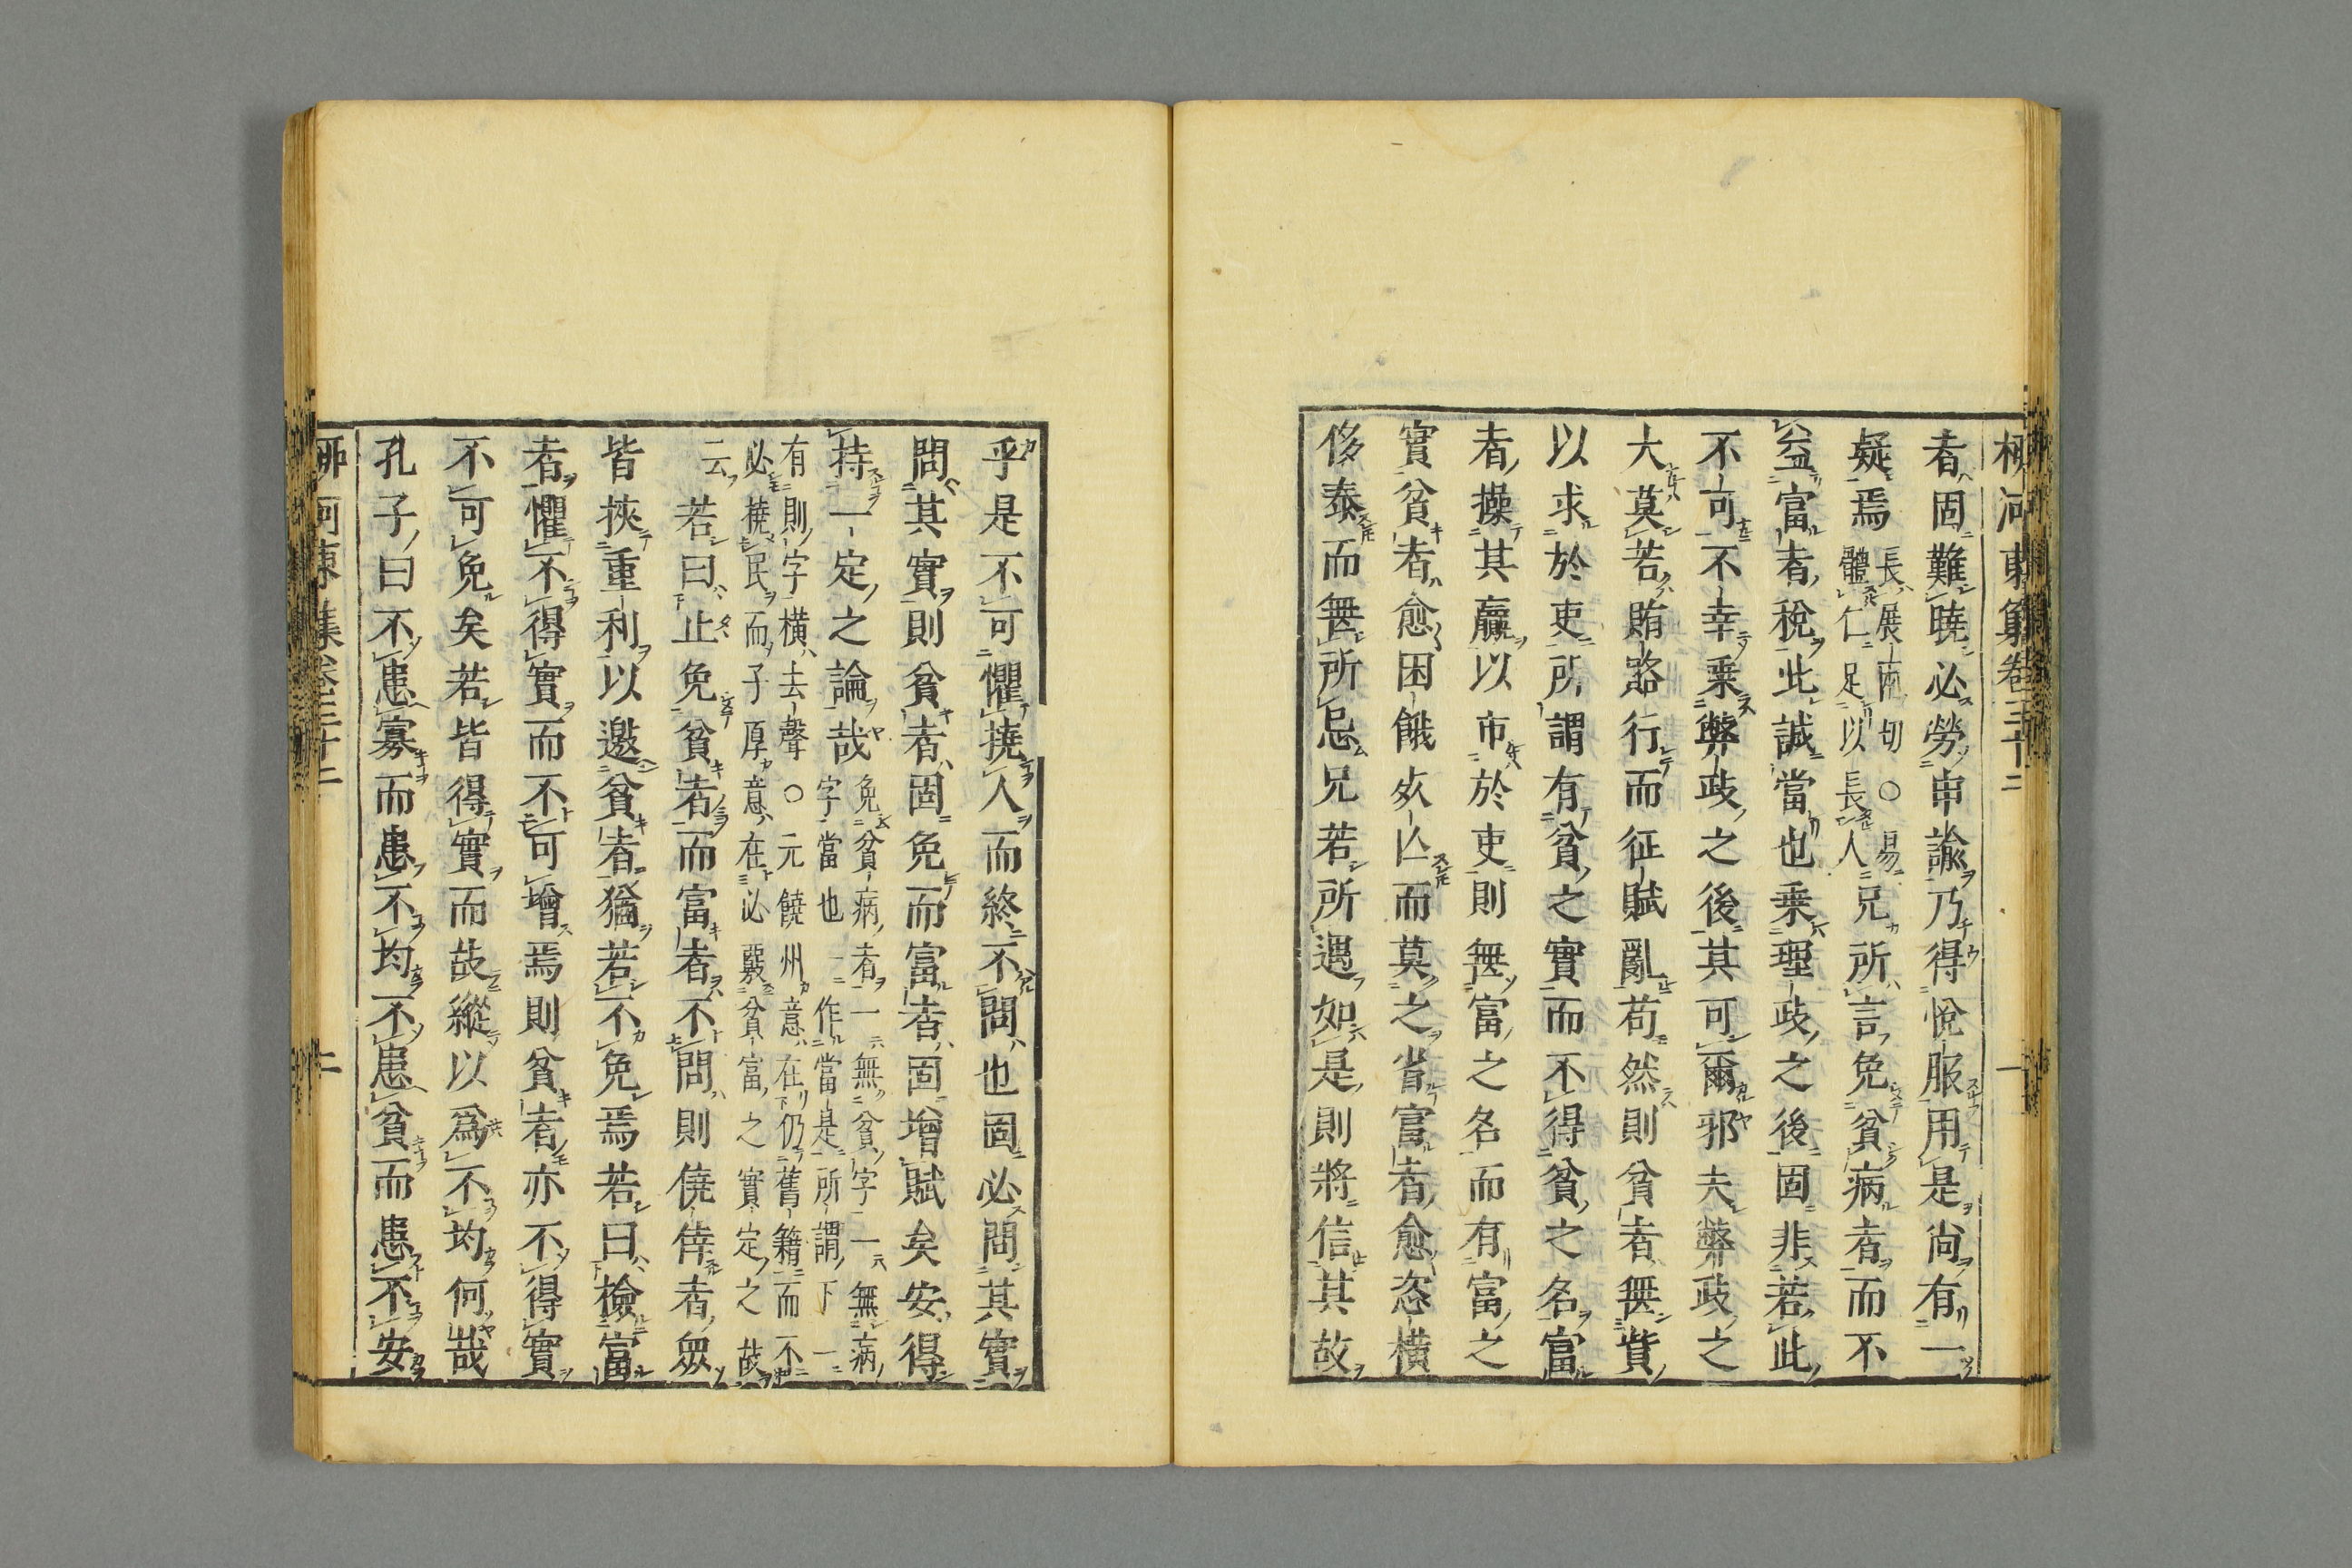 柳河東集卷三十二 一
者固難曉必勞申諭乃得悅服用是尚有一
疑焉長展兩切○易體仁足以長人兄所言免貧病者而不
益富者稅此誠當也乗理政之後固非若此
不可不幸乗弊政之後其可爾邪夫弊政之
大莫若賄路行而征賦亂苟然則貧者無貲
以求於吏所謂有貧之實而不得貧之名富
者操其贏以市於吏則無富之名而有富之
實貧者愈困餓死亡而莫之省富者愈恣橫
侈泰而無所忌兄若所遇如是則將信其故
乎是不可懼撓人而終不問也固必問其實
問其實則貧者固免而富者固增賦矣安得
持一定之論哉免貧病者一無貧字一無病字當也一作當是所謂下一
有則字橫去聲○元饒州意在仍舊籍而不
必撓民而子厚意在必覈貧富之實定之故
云若曰止免貧者而富者不問則僥倖者眾
皆挾重利以邀貧者猶若不免焉若曰檢富
者懼不得實而不可增焉則貧者亦不得實
不可免矣若皆得實而故縱以爲不均何哉
孔子曰不患寡而患不均不患貧而患不安
柳河東集卷三十二 二